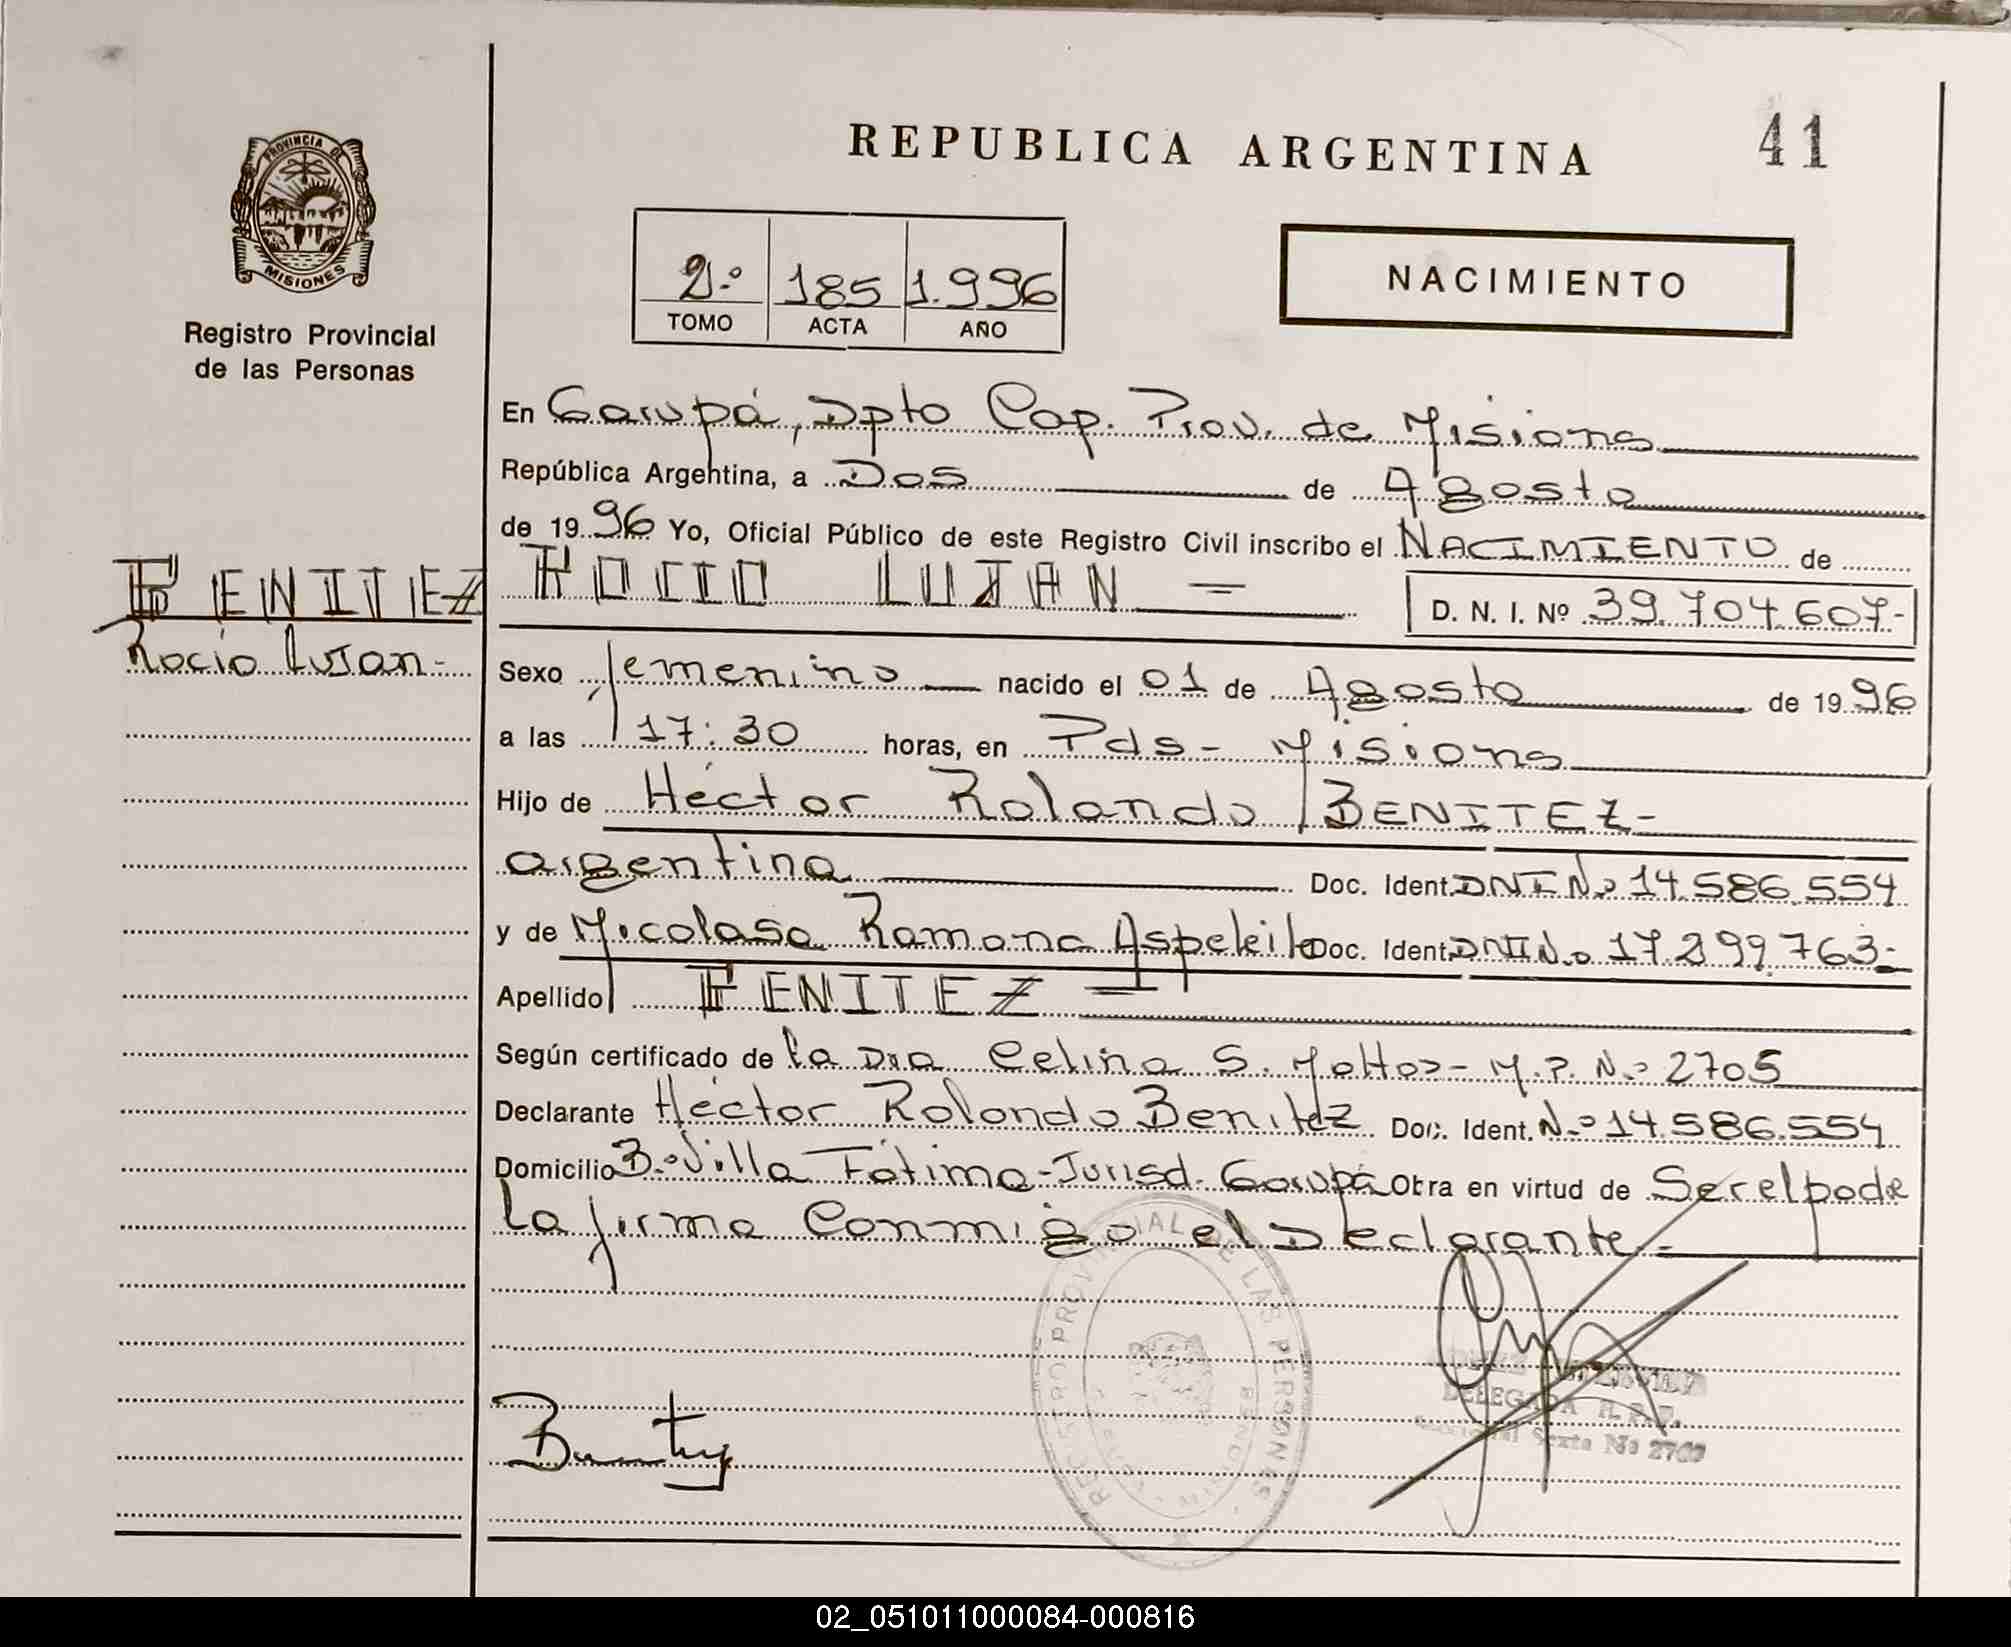 REPUBLICA ARGENTINA
41
PROVINCIA DE
MISIONES
Registro Provincial
de las Personas
2º 185 1.996
TOMO ACTA AÑO
NACIMIENTO
En Garupá, Dpto Cap. Prov. de Misiones
República Argentina, a Dos de Agosto
de 1996 Yo, Oficial Público de este Registro Civil inscribo el NACIMIENTO de
BENITEZ
Rocio Lujan-
ROCIO LUJAN =
D. N. I. Nº 39.704.607-
Sexo femenino nacido el 01 de Agosto de 1996
a las 17:30 horas, en Pds- Misiones
Hijo de Héctor Rolando BENITEZ-
argentina Doc. Ident. DNI Nº 14.586.554
y de Nicolasa Ramona Doc. Ident. DNI Nº 17.299.763-
Apellido BENITEZ =
Según certificado de la Dra Celina S. M.P. Nº 2705
Declarante Héctor Rolando Benitez Doc. Ident. Nº 14.586.554
Domicilio Bº Villa Fátima-Jurisd. Garupá Obra en virtud de Ser el padre
La firma Conmigo el Declarante-
REGISTRO PROVINCIAL DE LAS PERSONAS
DELEGADA R.P.P.
02_051011000084-000816